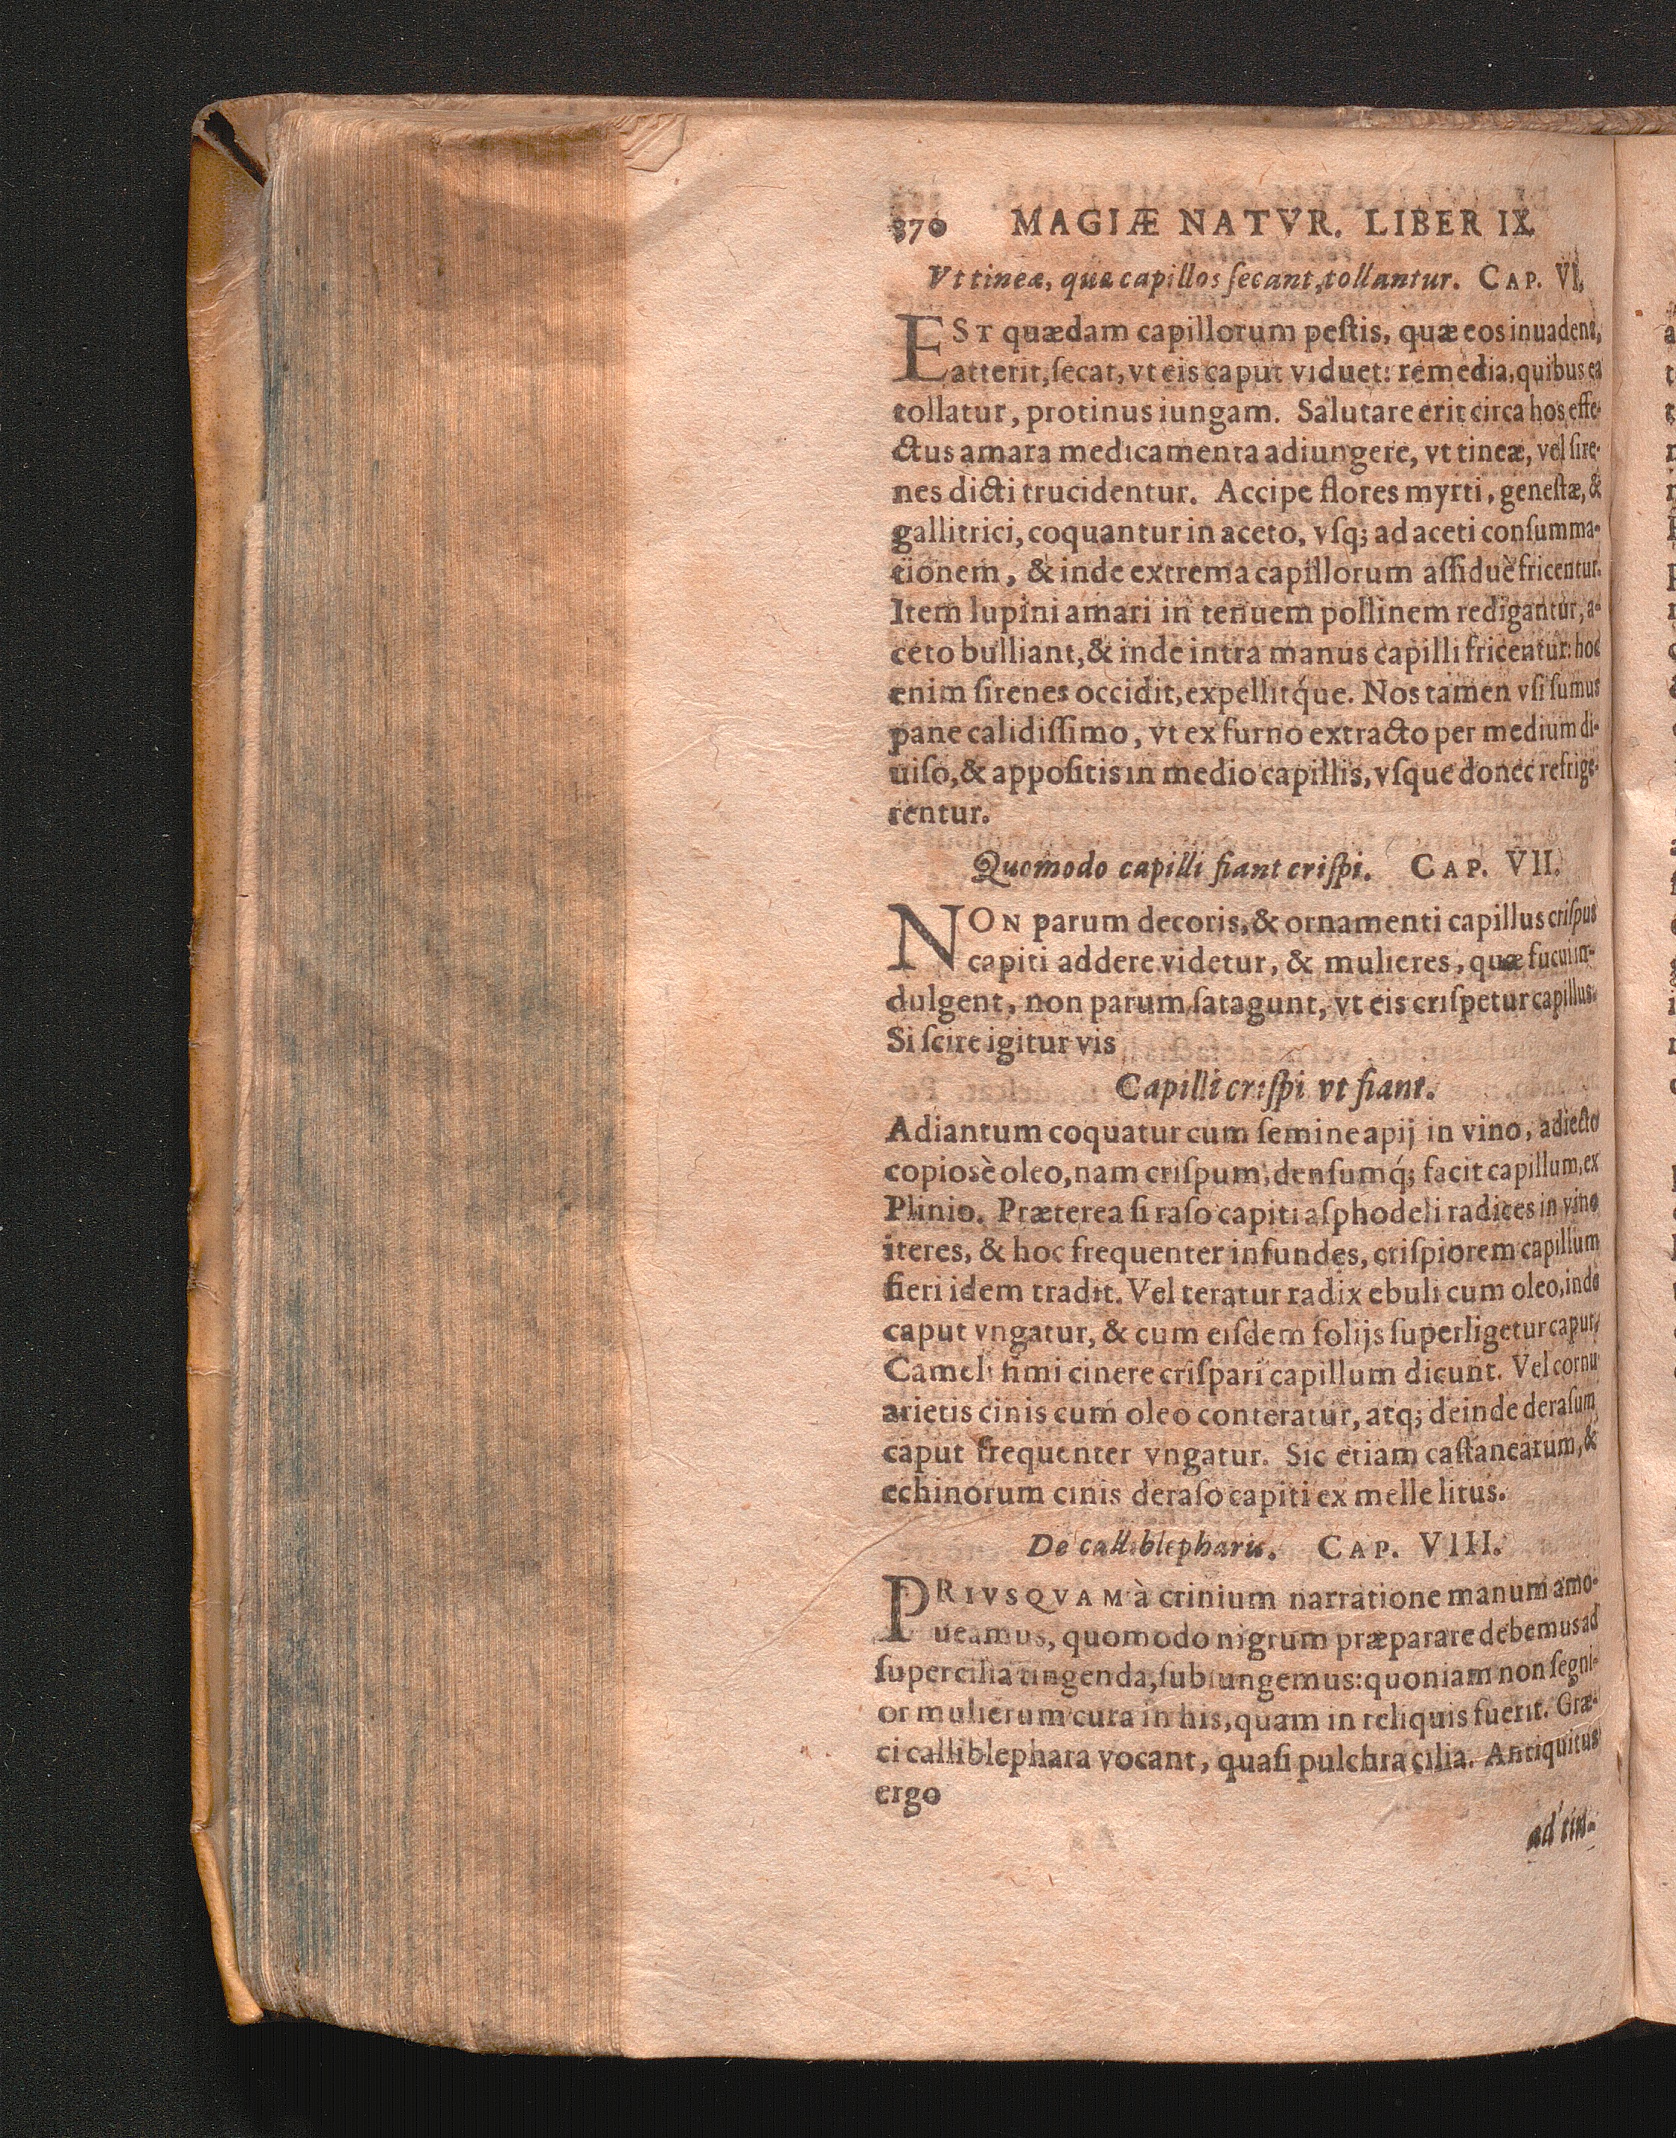 370 MAGIÆ NATVR. LIBER IX.
Vt tineæ, quæ capillos ſecant, tollantur. CAP. VI.
EST quædam capillorum peſtis, quæ eos inuadens,
atterit, ſecat, vt eis caput viduet: remedia, quibus ea
tollatur, protinus iungam. Salutare erit circa hos effe-
ctus amara medicamenta adiungere, vt tineæ, vel ſire-
nes dicti trucidentur. Accipe flores myrti, geneſtæ, &
gallitrici, coquantur in aceto, vſq; ad aceti conſumma-
tionem, & inde extrema capillorum aſſiduè fricentur.
Item lupini amari in tenuem pollinem redigantur, a-
ceto bulliant, & inde intra manus capilli fricentur: hoc
enim ſirenes occidit, expellitq́ue. Nos tamen vſi ſumus
pane calidiſſimo, vt ex furno extracto per medium di-
uiſo, & appoſitis in medio capillis, vſque donec refrige-
rentur.
Quomodo capilli fiant criſpi. CAP. VII.
NON parum decoris, & ornamenti capillus criſpus
capiti addere videtur, & mulieres, quæ fucui in-
dulgent, non parum ſatagunt, vt eis criſpetur capillus.
Si ſcire igitur vis
Capilli criſpi vt fiant.
Adiantum coquatur cum ſemine apij in vino, adiecto
copiosè oleo, nam criſpum, denſumq́; facit capillum, ex
Plinio. Præterea ſi raſo capiti aſphodeli radices in vino
iteres, & hoc frequenter infundes, criſpiorem capillum
fieri idem tradit. Vel teratur radix ebuli cum oleo, inde
caput vngatur, & cum eiſdem folijs ſuperligetur caput,
Cameli fimi cinere criſpari capillum dicunt. Vel cornu
arietis cinis cum oleo conteratur, atq; deinde deraſum
caput frequenter vngatur. Sic etiam caſtanearum, &
echinorum cinis deraſo capiti ex melle litus.
De calliblepharis. CAP. VIII.
PRIVSQVAM à crinium narratione manum amo-
ueamus, quomodo nigrum præparare debemus ad
ſupercilia tingenda, ſubiungemus: quoniam non ſegni-
or mulierum cura in his, quam in reliquis fuerit. Græ-
ci calliblephara vocant, quaſi pulchra cilia. Antiquitus
ergo
ad tin-